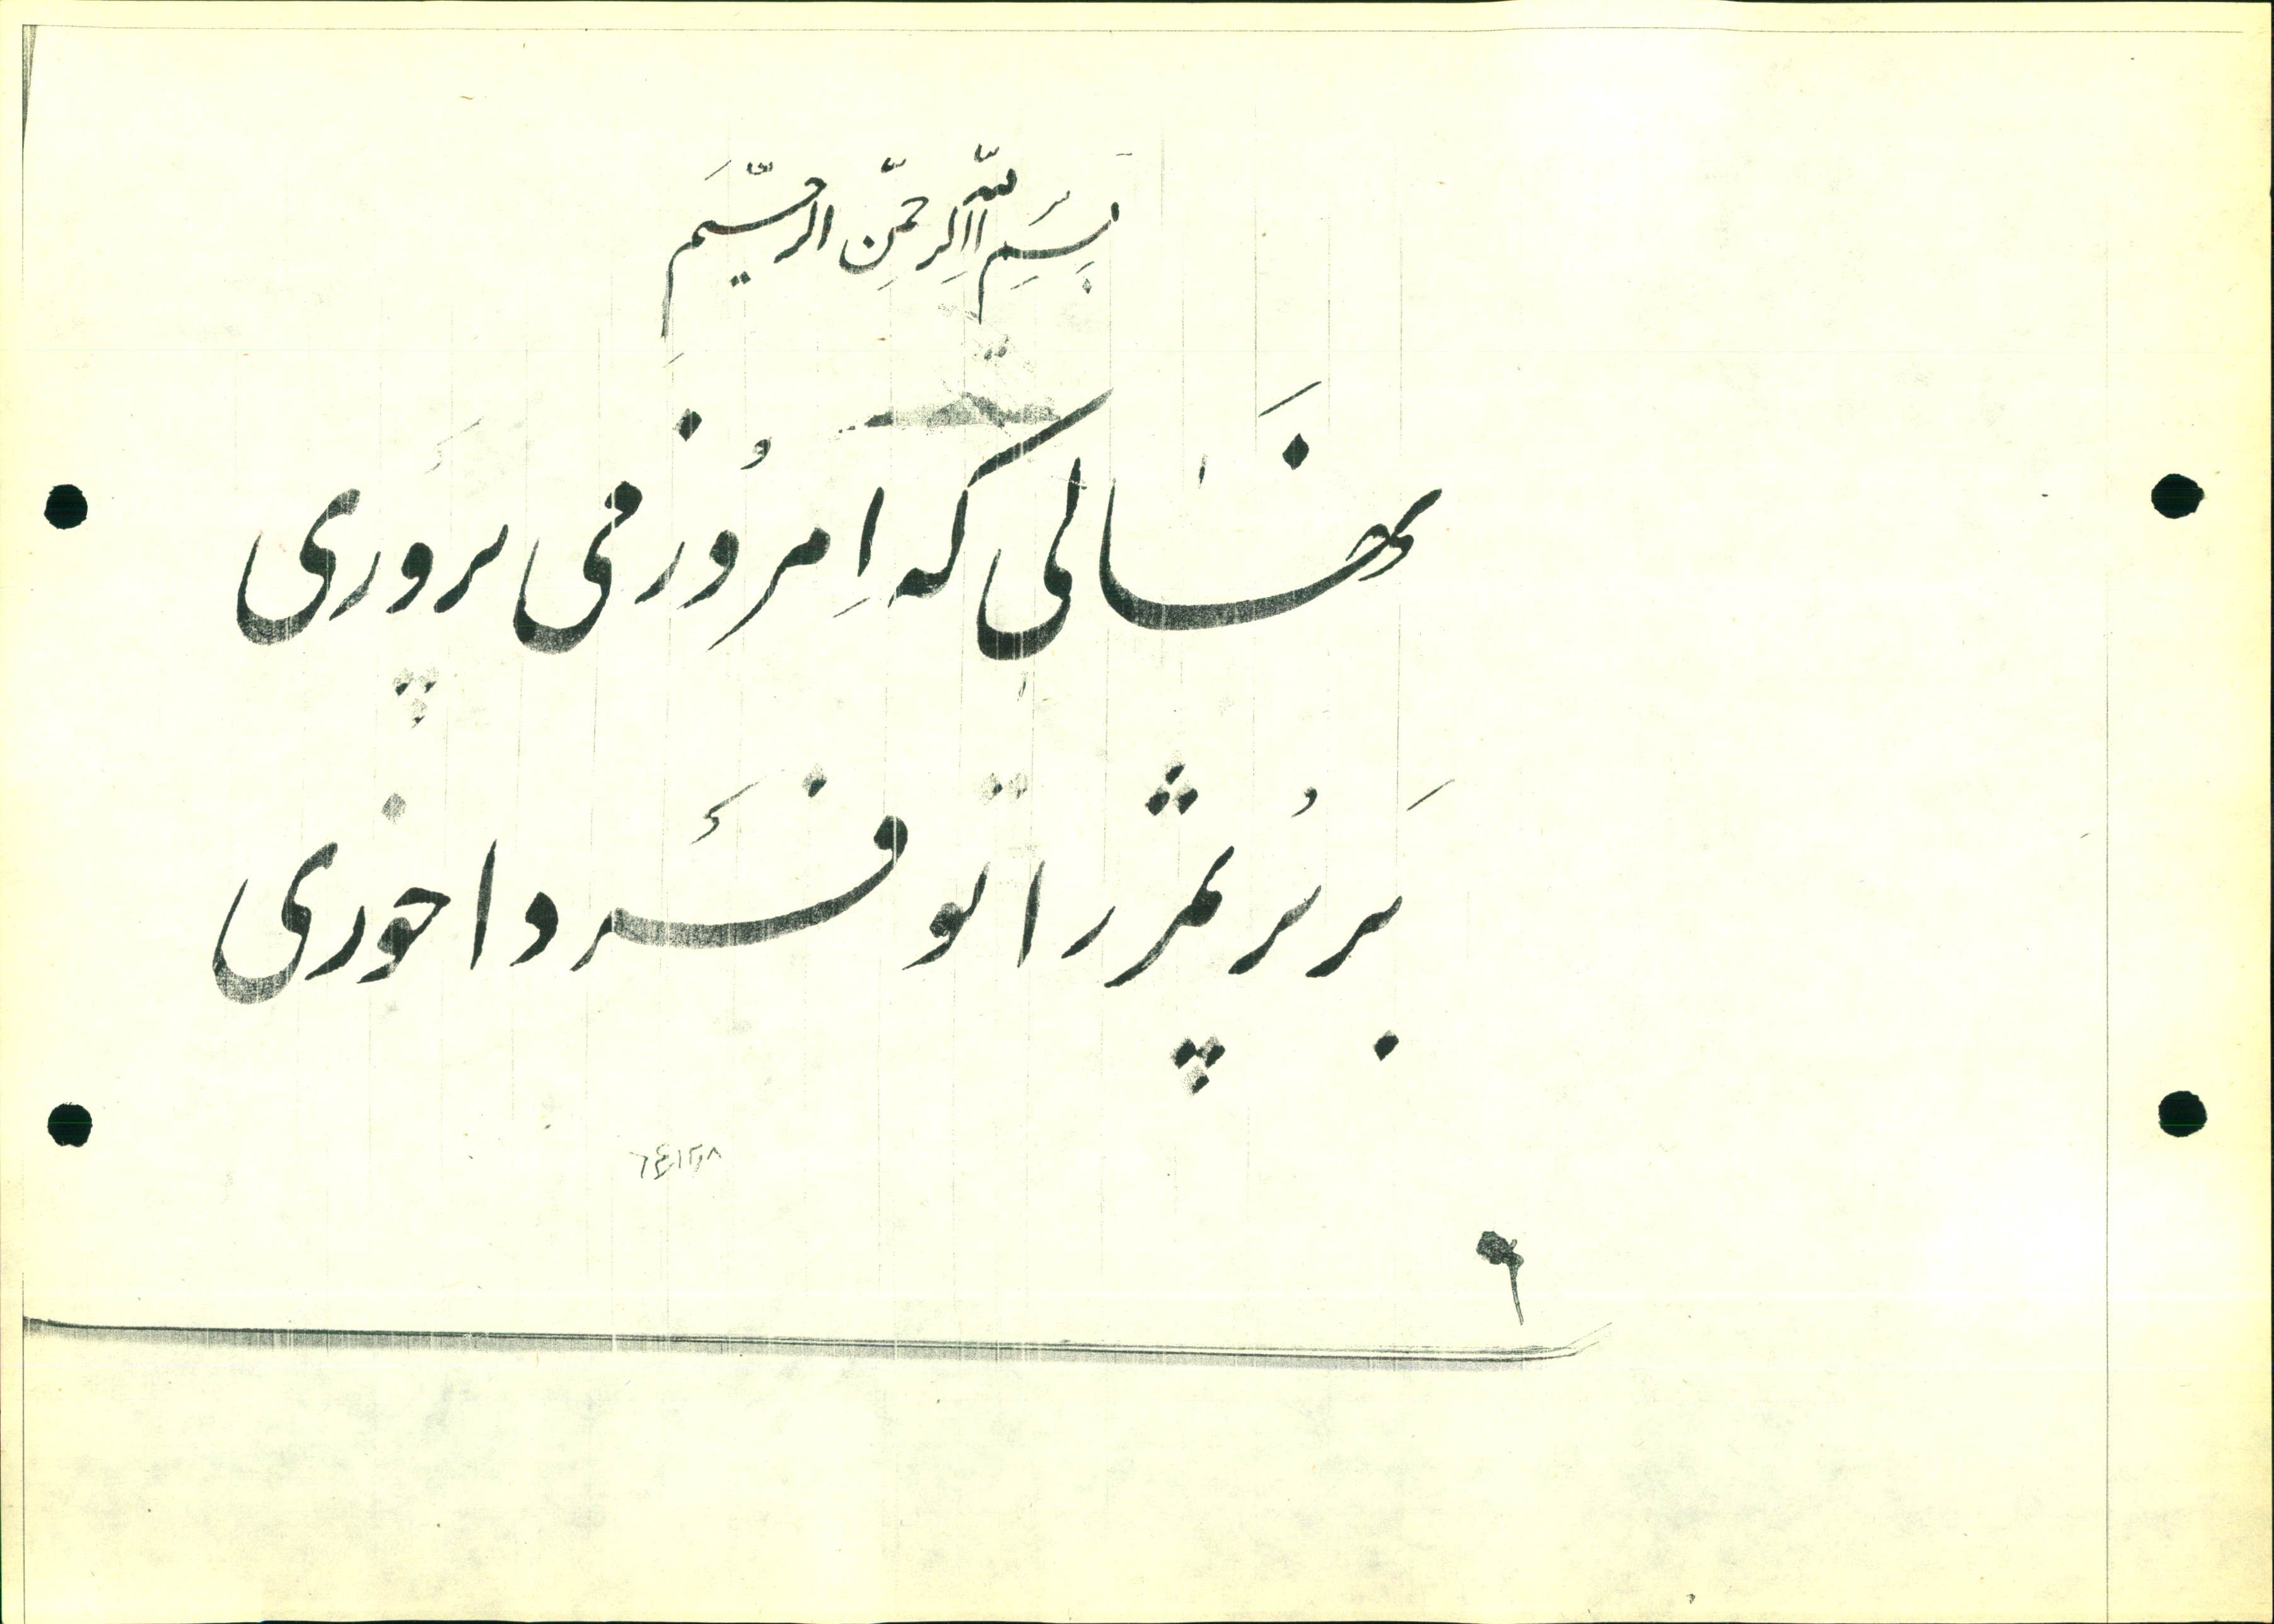 بِسْمِ اللّٰهِ الرَّحْمٰنِ الرَّحِيمِ
نَهالی که اِمرُوز می پَروَری
بَر پُر ثمر را تو فَردا خوری
۶